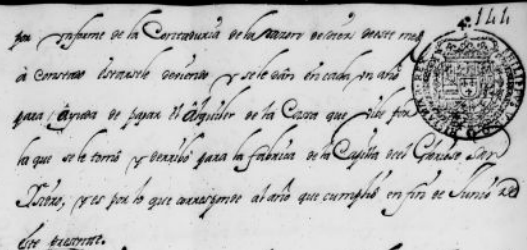 144
por ynforme de la Contaduria de la razon de diez deeste mes
à constado estarsele deviendo y se le dan en cada un año
para Ayuda de pagar el Alquiler de la Cassa que vive por
la que se le tomó y derribó para la fabrica de la Capilla del Glorioso San
Isidro, y es por lo que corresponde al año que cumplió en fin de Junio
deste presente.